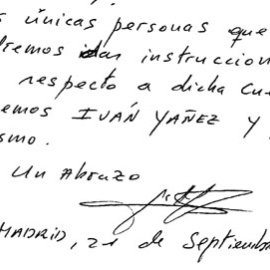 s únicas personas que
dremos dar instruccion
respecto a dicha cu
emos IVÁN YAÑEZ y
smo.
Un Abrazo
MADRID, 21 de Septiemb